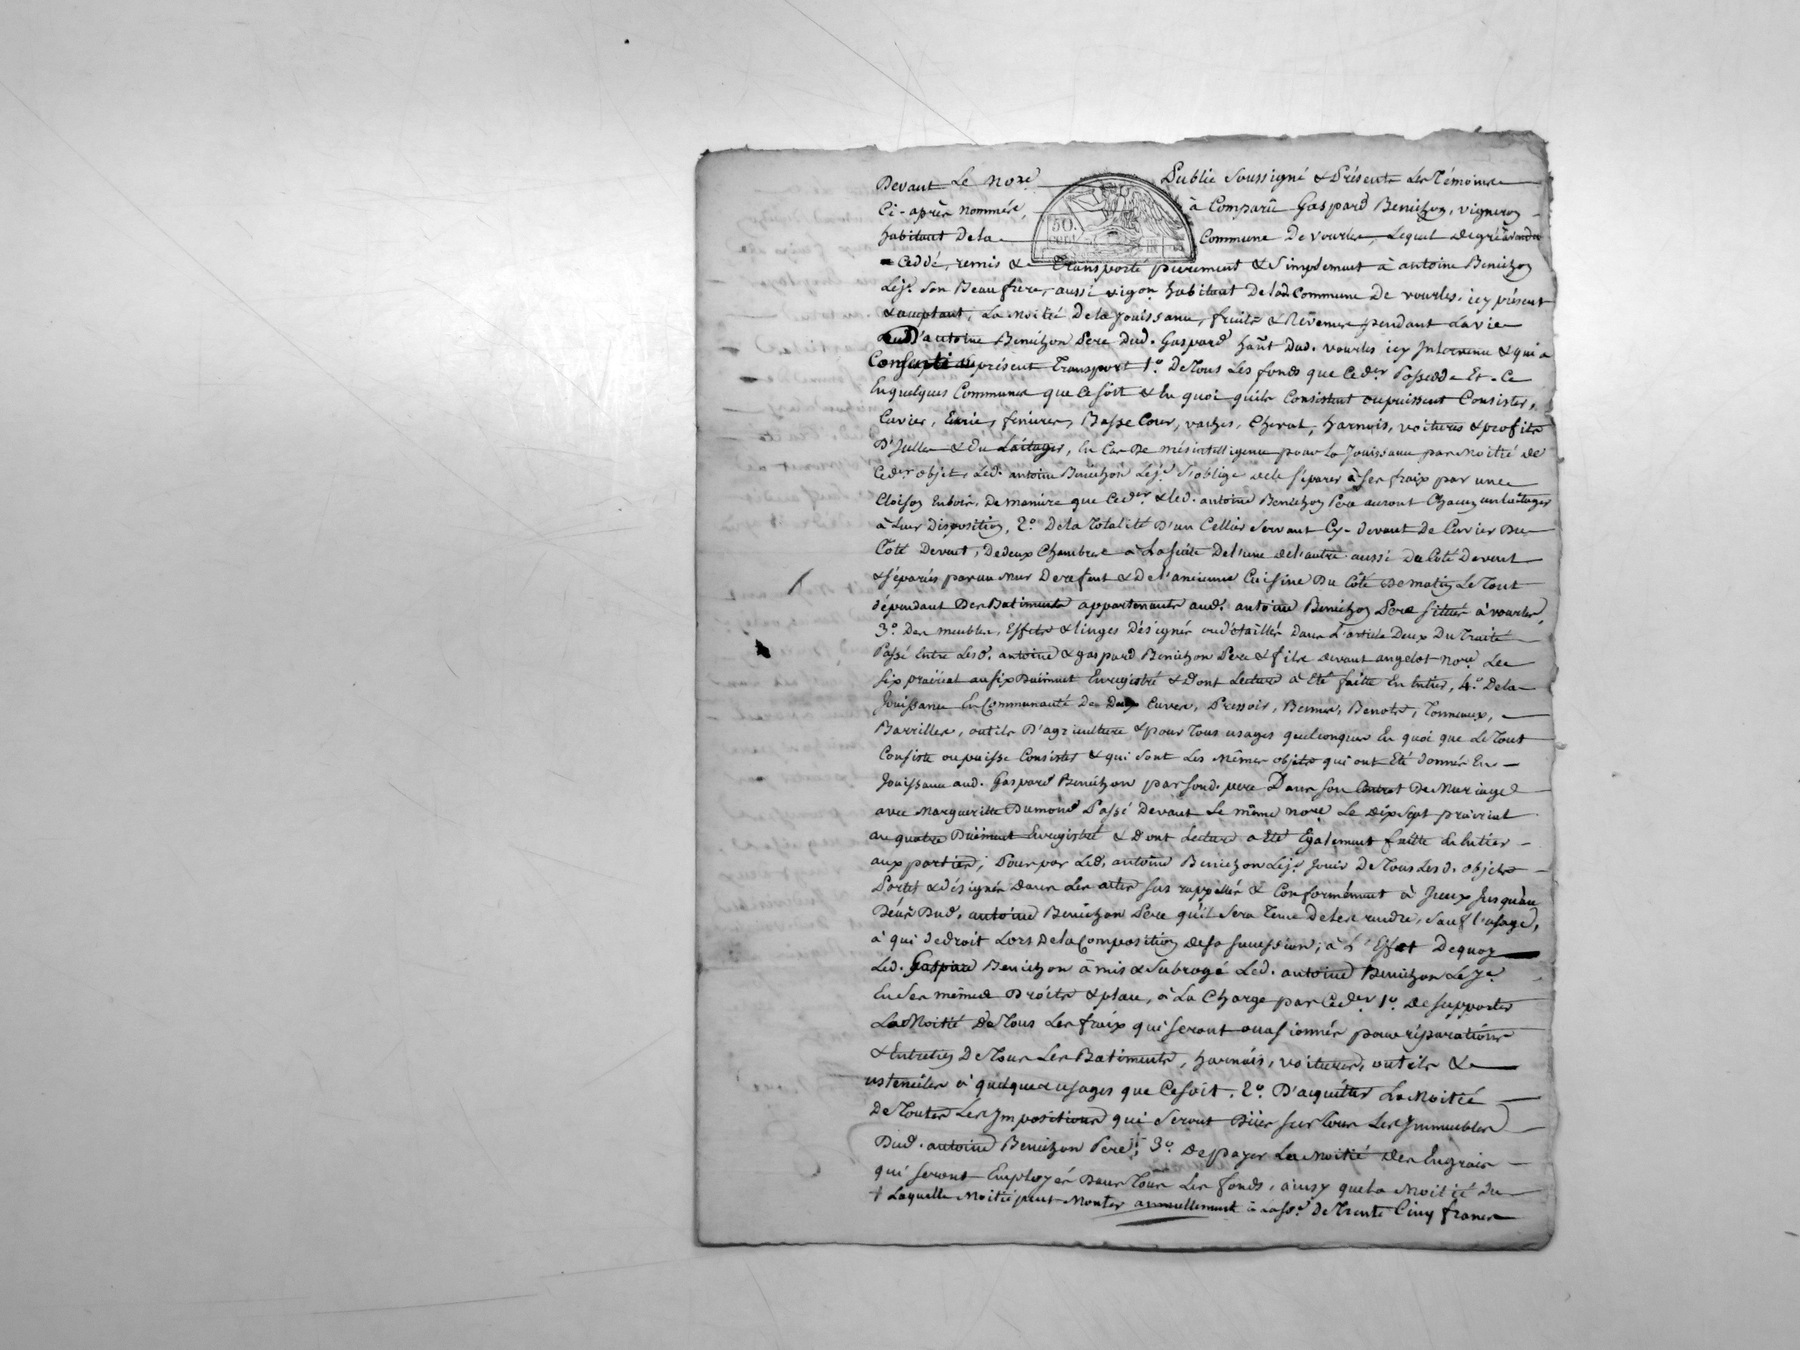 Devant Le Nore Public Soussigné & Présents Les Témoins
Ci-après Nommés, à Comparû Gaspard Benichon, vigneron
50.
habitant De la Commune De vourles, Lequel de gré à vendu
Ceddé, remis & Transporté purement & Simplement à antoine Benichon
Lejе. Son Beaufrere, aussi vigon. habitant De lad. Commune De vourles, icy présent
& acceptant, La moitié De la Jouissance, fruits & Révenus pendant La vie
D'antoine Benichon Pere Dud. Gaspard hañt Dud. vourles icy Intervenu & qui a
Consenti au présent Transport 1.° De Tous Les fonds que Ceder. Possede Et. Ce
En quelques Communes que Ce soit & En quoi quils Consistent ou puissent Consister,
Cuvier, Ecurie, feniere, Basse Cour, vaches, Cheval, harnois, voitures & profits
D'Iceller & Du Laitages, En Cas De mésintelligence pour La Jouissance par Moitié de
Cedr. objets, Led. antoine Benichon Leje. S'oblige de le séparer à ses fraix par une
Cloison En bois, De maniere que Ceder & led. antoine Benichon Pere auront Chacun un Laitages
à Leur Disposition, 2.° De la Totalité D'un Cellier Servant Cy-devant De Cuvier Du
Coté Devent, De deux Chambres à La suite De l'une de l'autre aussi Du Coté Devent
& séparés par un Mur De refent & De l'ancienne Cuisine Du Côté De matin, Le Tout
dépendant Des Batiments appartenants aud. antoine Benichon Pere situés à vourles,
3.° Des meubles, Effets & linges Désignés ou détaillés Dans L'article Deux Du Traité
Passé Entre Lesd. antoine & gaspard Benichon Pere & fils devant angelot Nore. Les
six prairial an six Düement Enregistré & Dont Lecture à Eté faitte En Entier, 4.° De la
Jouissance En Communauté Des Deux Cuves, Pressoir, Bennes, Benots, Tonneaux,
Barrilles, outils D'agriculture & pour Tous usages quelconques En quoi que Le Tout
Consiste ou puisse Consister & qui Sont Les Mêmes objets qui ont Eté donnés En
Jouissance aud. Gaspard Benichon par Son d. pere Dans son Contrat De Mariage
avec Marguerite Dumond Passé Devant Le même Nore Le Dix Sept prairial
an quatre Düement Enregistré & Dont Lecture a Eté Egalement faitte En Entier
aux parties; Pour par Led. antoine Benichon Leje. Jouir De Tous Lesd. objets
Portés & désignés dans Les actes sus rappellés & Conformément à Iceux Jusqu'au
Décès Dud. antoine Benichon Pere qu'il Sera Tenu De les rendre, Sauf l'usage,
à qui de droit Lors De la Composition de sa succession; à L'Effet De quoy
Led. Gaspard Benichon à mis & Subrogé Led. antoine Benichon Leje
En Ses mêmes Droits & place, à La Charge par Ceder. 1.° De supporter
La Moitié De Tous Les fraix qui Seront occasionnés pour réparations
& Entretien De Tous Les Batiments, harnois, voitures, outils &
ustenciles à quelques usages que Ce soit. 2.° D'acquitter La Moitié
De Toutes Les Impositions qui Seront Dües sur Tous Les Immeubles
Dud. antoine Benichon Pere; 3.° De payer La Moitié Des Engrais
qui seront Employés Dans Tous Les fonds, ainsy que la Moitié du
† Laquelle Moitié peut Monter annuellement à La Se. De Trente Cinq francs